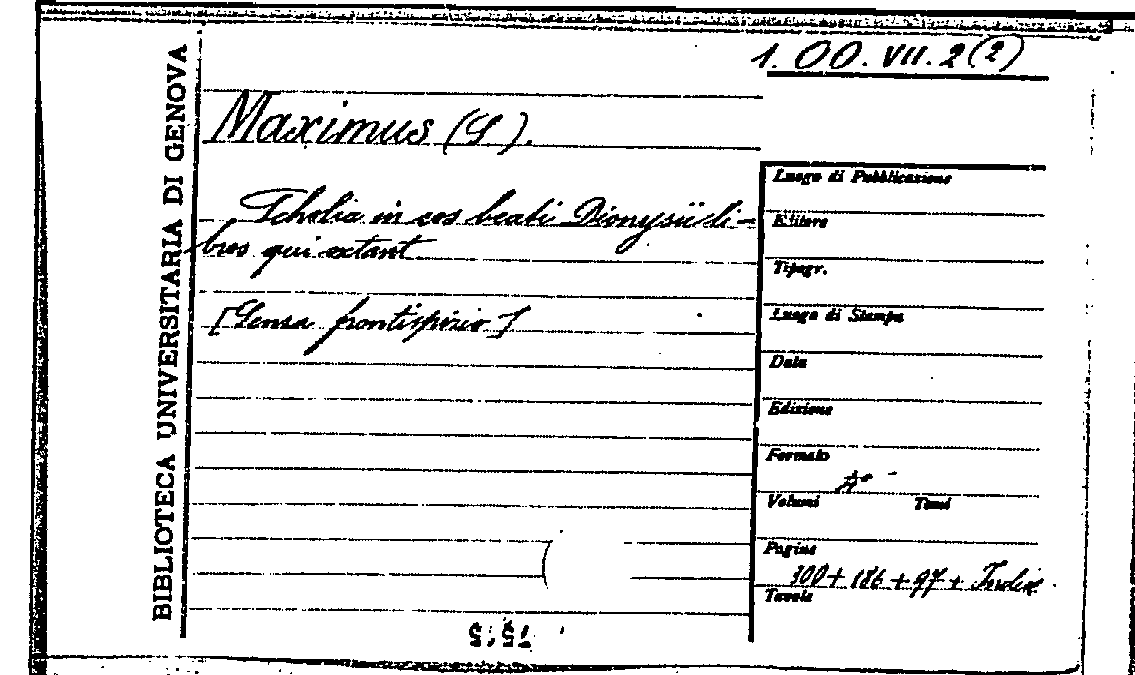 1. OO. VII. 2(2)
BIBLIOTECA UNIVERSITARIA DI GENOVA
Maximus (S).
Scholia in eos beati Dionysii li-
bros qui extant
[Senza frontispizio]
Luogo di Pubblicazione
Editore
Tipogr.
Luogo di Stampa
Data
Edizione
Formato
4°
Volumi Tomi
Pagine
300 + 186 + 97 + Indice
Tavole